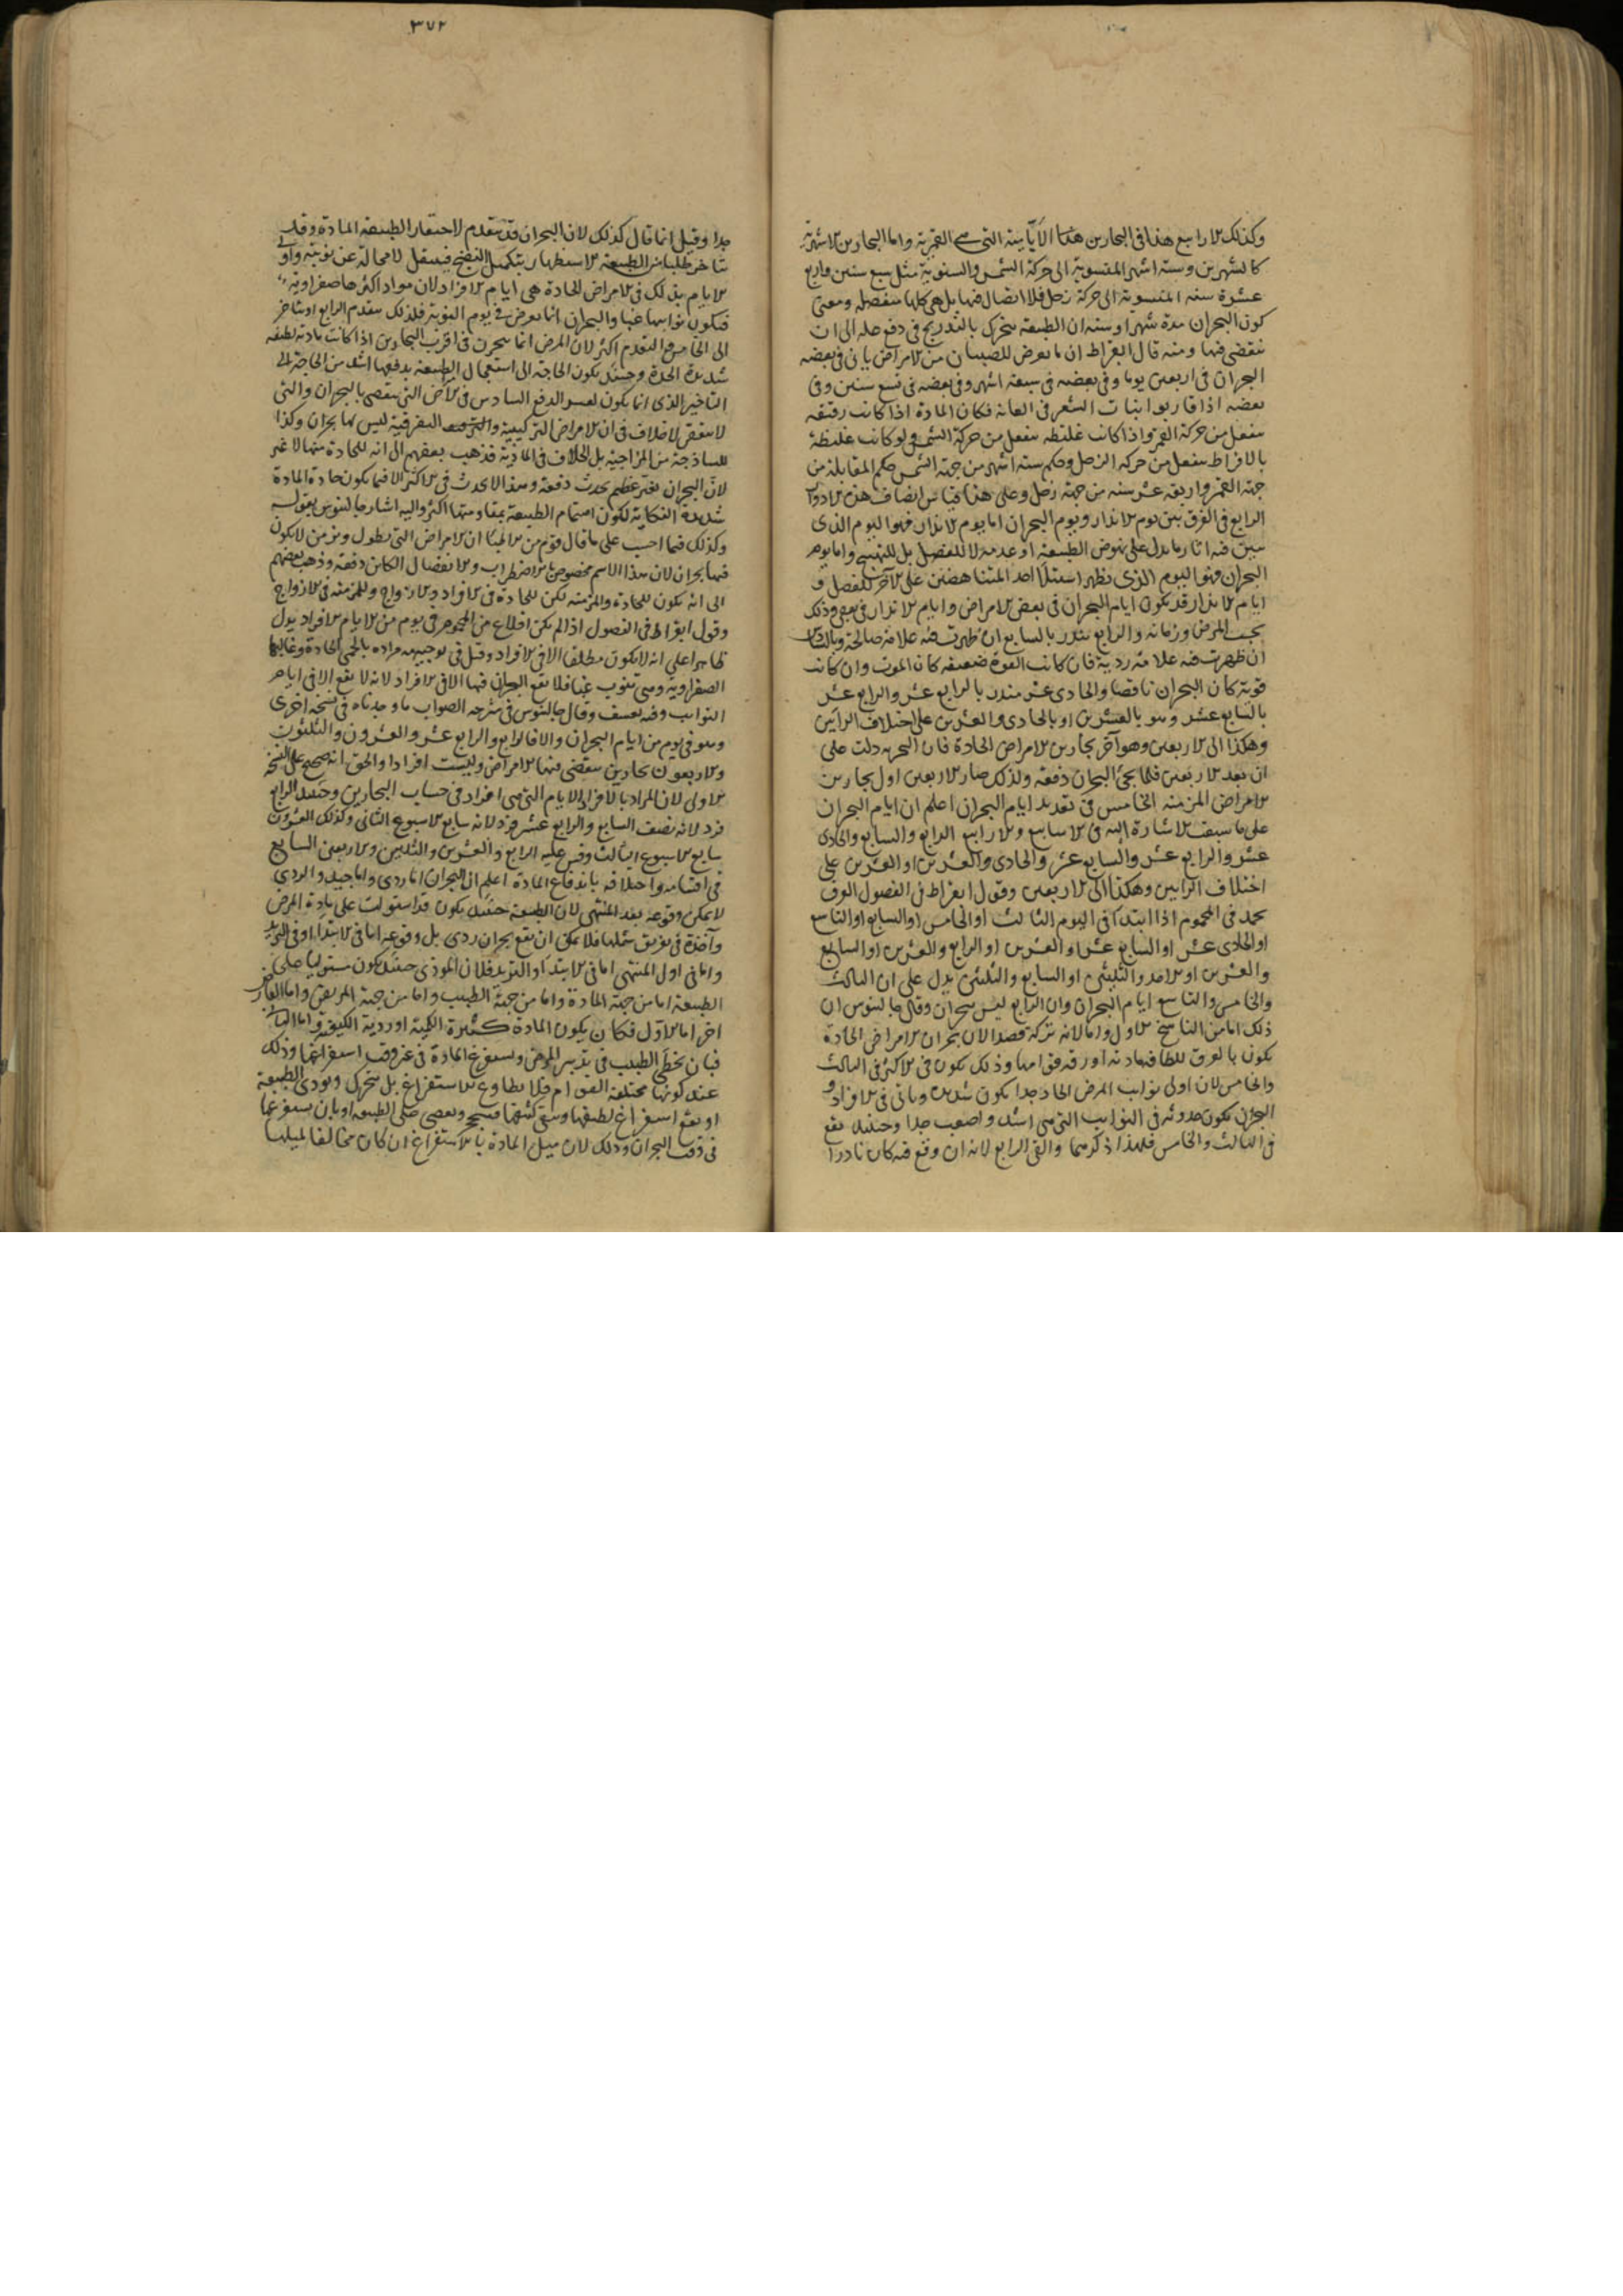 وكذلك الارابيع هذا فى البحارين الايامية التى هى القمرية واما البحارين الاشهرية
كالشهرين وستة اشهر المنسوبة الى حركة الشمس والسنوية مثل سبع سنين واربع
عشرة سنة المنسوبة الى حركة زحل فلا اتصال فيها بل هى كلها منفصلة ومعنى
كون البحران مدة شهر او سنة ان الطبيعة تتحرك بالتدريج فى دفع علة الى ان
تنقضى فيها ومنه قال ابقراط ان ما يعرض للصبيان من الامراض ياتى فى بعضه
البحران فى اربعين يوما وفى بعضه فى سبعة اشهر وفى بعضه فى سبع سنين وفى
بعضه اذا قاربوا انبات الشعر فى العانة فكان المادة اذا كانت رقيقة
تنفعل من حركة القمر واذا كانت غليظة تنفعل من حركة الشمس ولو كانت غليظة
بالافراط تنفعل من حركة الزحل وحكم ستة اشهر من جهة الشمس حكم المقابلة من
جهة القمر واربعة عشر سنة من جهة زحل وعلى هذا قياس انصاف هذه الادوار
الرابع فى الفرق بين يوم الانذار ويوم البحران اما يوم الانذار فهو اليوم الذى
يتبين فيه اثار ما يدل على نهوض الطبيعة او عدمه لا للفصل بل للتهيئ واما يوم
البحران فهو اليوم الذى يظهر استيلا احد المتناهضين على الآخر للفصل و
ايام الانذار قد يكون ايام البحران فى بعض الامراض وايام الانذار فى بعض وذلك
بحسب المرض وزمانه والرابع ينذر بالسابع ان ظهرت فيه علامة صالحة وبالسادس
ان ظهرت فيه علامة ردية فان كانت القوة ضعيفة كان الموت وان كانت
قوية كان البحران ناقصا والحادى عشر منذر بالرابع عشر والرابع عشر
بالسابع عشر وهو بالعشرين او بالحادى والعشرين على اختلاف الرايين
وهكذا الى الاربعين وهو آخر بحارين الامراض الحادة فان التجربه دلت على
ان بعد الاربعين قلما يجئ البحران دفعة ولذلك صار الاربعين اول بحارين
الامراض المزمنة الخامس فى تعديد ايام البحران اعلم ان ايام البحران
على ما سبقت الاشارة اليه فى الاسابيع والارابيع الرابع والسابع والحادى
عشر والرابع عشر والسابع عشر والحادى والعشرين او العشرين على
اختلاف الرايين وهكذا الى الاربعين وقول ابقراط فى الفصول العرق
يحمد فى المحموم اذا ابتدا فى اليوم الثالث او الخامس او السابع او التاسع
او الحادى عشر او السابع عشر او العشرين او الرابع والعشرين او السابع
والعشرين او الاحد والثلثين او السابع والثلثين يدل على ان الثالث
والخامس والتاسع ايام البحران وان الرابع ليس ببحران وقال جالينوس ان
ذلك اما من الناسخ الاول واما لانه تركه قصدا لان بحران الامراض الحادة
يكون بالعرق للطافة مادته او رقة قوامها وذلك يكون فى الاكثر فى الثالث
والخامس لان اولى نوايب المرض الحاد جدا يكون شديدة وياتى فى الافراد و
البحران يكون حدوثه فى النوايب التى هى اشد واصعب جدا وحينئذ يقع
فى الثالث والخامس فلهذا ذكرهما والقى الرابع لانه ان وقع فيه كان نادرا
٣٧٢
جدا وقيل انما قال كذلك لان البحران قد يتقدم لاحتقار الطبيعة المادة وقد
يتاخر طلبا من الطبيعة الاستظهار بتكميل النضج فينتقل لا محالة عن نوبته واولى
الايام بذلك فى الامراض الحادة هى ايام الافراد لان مواد اكثرها صفراوية
فيكون نوايبها غبا والبحران انما يعرض فى يوم النوبة فلذلك يتقدم الرابع او يتاخر
الى الخامس والتقدم اكثر لان المرض انما يتحرن فى اقرب البحارين اذا كانت مادته لطيفة
شديدة الحدة وحينئذ يكون الحاجة الى استعجال الطبيعة بدفعها اشد من الحاجة الى
التاخير الذى انما يكون لعسر الدفع السادس فى الامراض التى تنقضى بالبحران والتى
لا تنقضى لا خلاف فى ان الامراض التركيبية والتفرقية ليس لها بحران وكذا
للساذجة من المزاجية بل الخلاف فى المادية فذهب بعضهم الى انه للحادة منها لا غير
لان البحران تغير عظيم يحدث دفعة وهذا لا يحدث فى الاكثر الا فيما يكون حادة المادة
شديدة النكاية لكون اهتمام الطبيعة بمقاومتها اكثر واليه اشار جالينوس بقوله
وكذلك فيما احسب على ما قال قوم من الاطبا ان الامراض التى تطول وتزمن لا يكون
فيها بحران لان هذا الاسم مخصوص بالاضطراب والانفصال الكائن دفعة وذهب بعضهم
الى انه يكون للحادة والمزمنة لكن للحادة فى الافراد والازواج وللمزمنة فى الازواج
وقول ابقراط فى الفصول اذا لم يكن اقلاع من المحموم فى يوم من الايام الافراد يدل
ظاهرا على انه لا يكون مطلقا الا فى الافراد وقيل فى توجيهه مراده بالحمى الحادة وغالبها
الصفراوية وهى تنوب غبا فلا يقع البحران فيها الا فى الافراد لانه لا يقع الا فى ايام
النوايب وفيه تعسف وقال جالينوس فى شرحه الصواب ما وجدناه فى نسخة اخرى
وهو فى يوم من ايام البحران والا فالرابع والرابع عشر والعشرون والثلثون
والاربعون بحارين تنقضى فيها الامراض وليست افرادا والحق انه صحيح على النسخة
الاولى لان المراد بالافراد الايام التى هى افراد فى حساب البحارين وحينئذ الرابع
فرد لانه نصف السابع والرابع عشر فرد لانه سابع الاسبوع الثانى وكذلك العشرون
سابع الاسبوع الثالث وقس عليه الرابع والعشرين والثلثين والاربعين السابع
فى اقسامه واختلافه باندفاع المادة اعلم ان البحران اما ردى واما جيد والردى
لا يمكن وقوعه بعد المنتهى لان الطبيعة حينئذ يكون قد استولت على مادة المرض
وآخذة فى تفريق شملها فلا يمكن ان يقع بحران ردى بل وقوعه اما فى الابتدا او فى التزيد
واما فى اول المنتهى اما فى الابتدا والتزيد فلان الموذى حينئذ يكون مستوليا على
الطبيعة اما من جهة المادة واما من جهة الطبيب واما من جهة المريض واما لعارض
اخر اما الاول فكان يكون المادة كثيرة الكمية او ردية الكيفية واما الثانى
فبان يخطى الطبيب فى تدبير المرض ويستفرغ المادة فى غير وقت استفراغها وذلك
عند كونها مختلفة القوام فلا يطاوع الاستفراغ بل يتحرك ويوذى الطبيعة
او يقع استفراغ لطيفها ويبقى كثيفها فيتحجر ويعصى على الطبيعة او بان يستفرغها
فى وقت البحران وذلك لان ميل المادة بالاستفراغ ان كان مخالفا لميلها